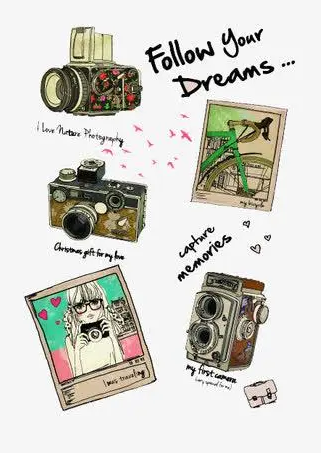 Follow Your
Dreams ...
I Love Nature Photography
my bicycle
Christmas gift for my love
capture
memories
I was traveling
my first camera
(very special for me)